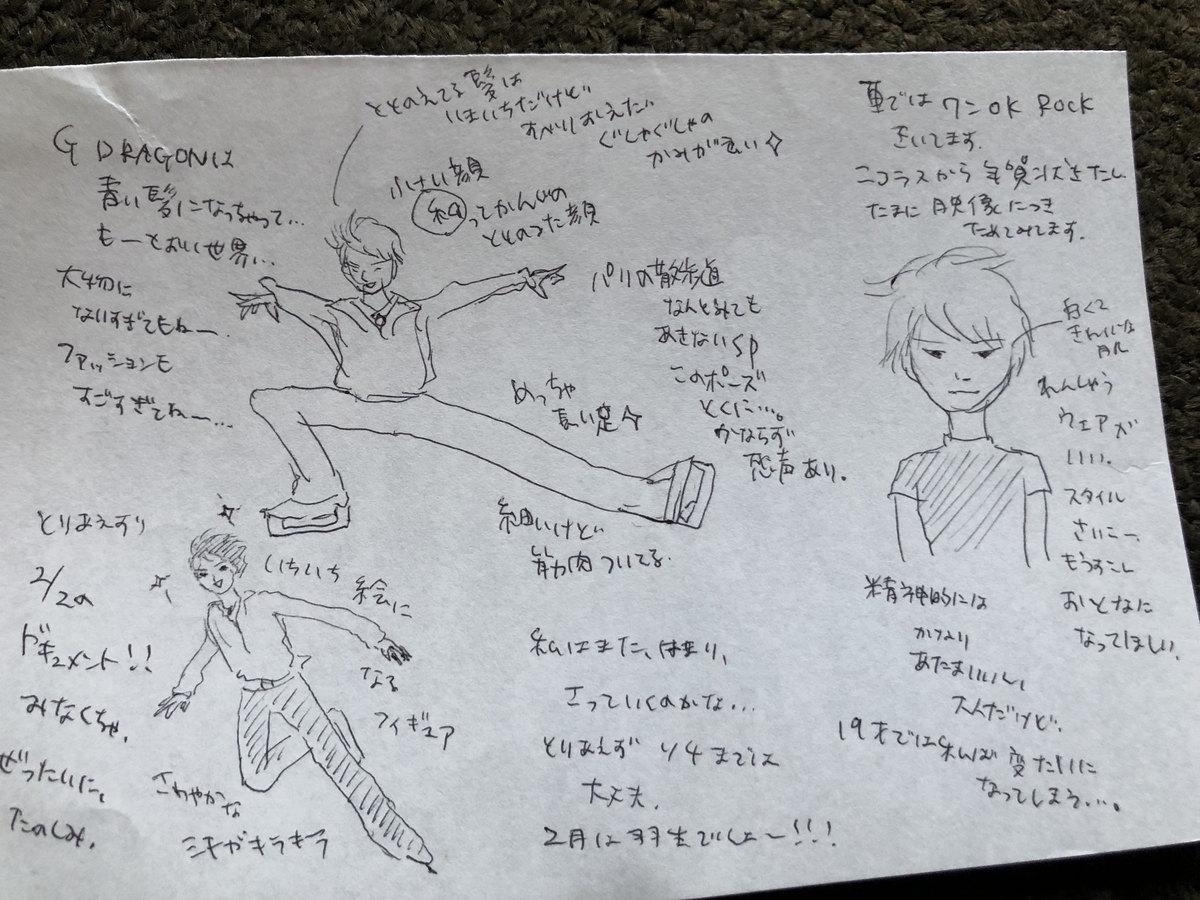 G DRAGONは
青い髪になっちゃって…
もーとおい世界…
大物に
なりすぎてもねー
ファッションも
すごすぎてねー…
ととのえてる髪は
いまいちだけど
すべりおえた
ぐしゃぐしゃの
かみが良い☆
小さい顔
和ってかんじの
ととのった顔
パリの散歩道
なんどみても
あきないSP
このポーズ
とくに…。
かならず
恐声あり。
めっちゃ
長い足☆
細いけど
筋肉ついてる
車ではワンOK ROCK
きいてます。
ニコラスから年賀状きたし
たまに映像につき
ためてみてます。
白くて
きれいな
肌
れんしゅう
ウェアが
いい。
スタイル
さいこー。
もうすこし
おとなに
なってほしい。
精神的には
かなり
あたまいいし
大人だけど。
19才では私が変たいに
なってしまう…。
とりあえず
2/2の
ドキュメント!!
みなくちゃ。
ぜったいに。
たのしみ。
いちいち絵に
なる
フィギュア
さわやかな
ミキがキラキラ
私はまた、はまり、
さっていくのかな…
とりあえず 1/4までは
大丈夫。
2月は羽生でしょー!!!